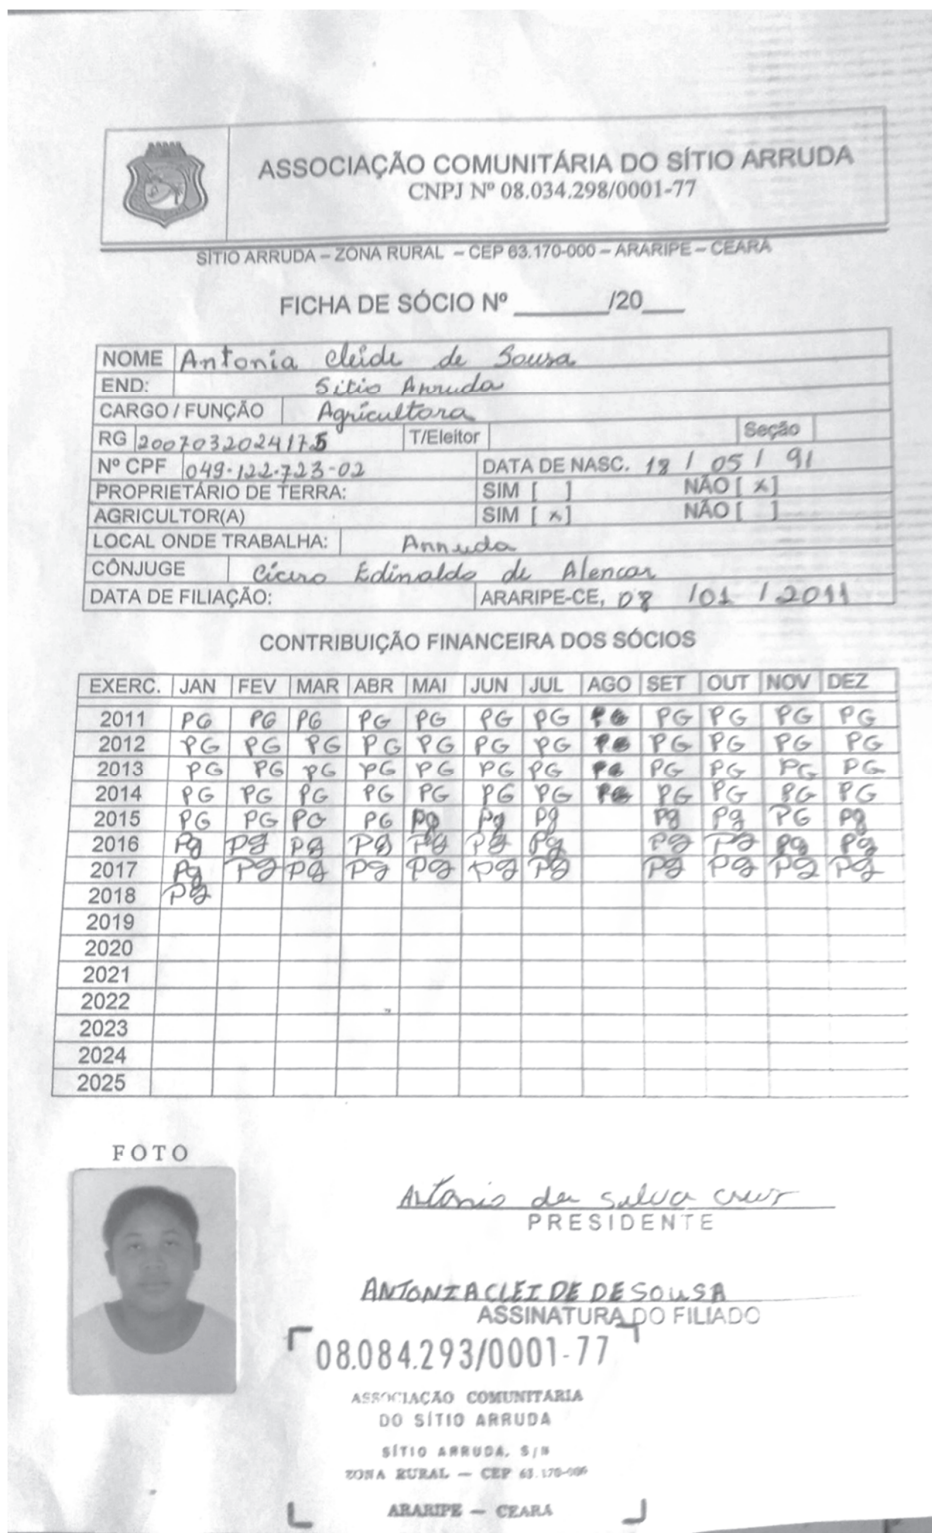 ASSOCIAÇÃO COMUNITÁRIA DO SÍTIO ARRUDA
CNPJ Nº 08.034.298/0001-77
SÍTIO ARRUDA – ZONA RURAL – CEP 63.170-000 – ARARIPE – CEARÁ
FICHA DE SÓCIO Nº ______/20___
NOME Antonia cleide de Sousa
END: Sitio Arruda
CARGO / FUNÇÃO Agricultora
RG 2007032024175 T/Eleitor Seção
Nº CPF 049.122.723-02 DATA DE NASC. 18 / 05 / 91
PROPRIETÁRIO DE TERRA: SIM [ ] NÃO [ x ]
AGRICULTOR(A) SIM [ x ] NÃO [ ]
LOCAL ONDE TRABALHA: Arruda
CÔNJUGE Cícero Edinaldo de Alencar
DATA DE FILIAÇÃO: ARARIPE-CE, 08 /01 / 2011
CONTRIBUIÇÃO FINANCEIRA DOS SÓCIOS
EXERC. JAN FEV MAR ABR MAI JUN JUL AGO SET OUT NOV DEZ
2011 PG PG PG PG PG PG PG PG PG PG PG PG
2012 PG PG PG PG PG PG PG PG PG PG PG PG
2013 PG PG PG PG PG PG PG PG PG PG PG PG
2014 PG PG PG PG PG PG PG PG PG PG PG PG
2015 PG PG PG PG Pg Pg Pg Pg Pg PG Pg
2016 Pg Pg Pg Pg Pg Pg Pg Pg Pg Pg Pg
2017 Pg Pg Pg Pg Pg Pg Pg Pg Pg Pg Pg
2018 Pg
2019
2020
2021
2022
2023
2024
2025
FOTO
Antonio da silva cruz
PRESIDENTE
ANTONIA CLEIDE DE SOUSA
ASSINATURA DO FILIADO
08.084.293/0001-77
ASSOCIAÇÃO COMUNITARIA
DO SÍTIO ARRUDA
SÍTIO ARRUDA, S/N
ZONA RURAL – CEP 63.170-000
ARARIPE – CEARÁ